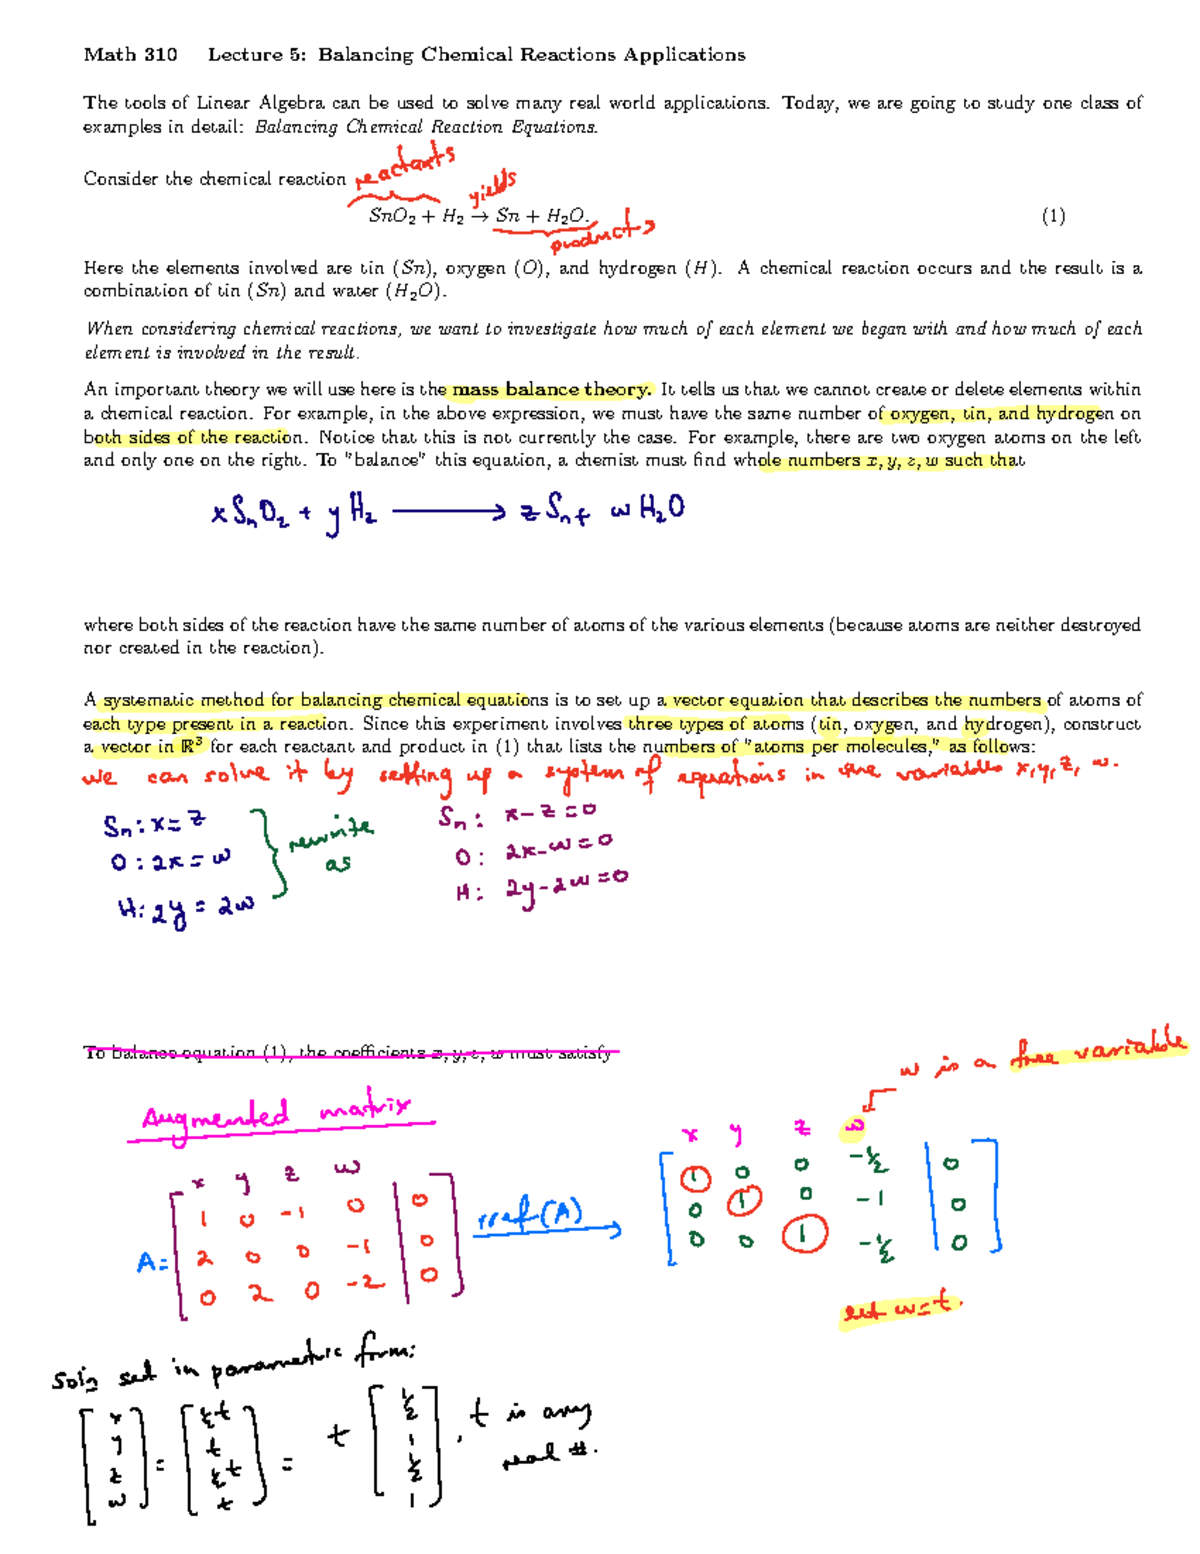 Math 310 Lecture 5: Balancing Chemical Reactions Applications
The tools of Linear Algebra can be used to solve many real world applications. Today, we are going to study one class of
examples in detail: Balancing Chemical Reaction Equations.
reactants
Consider the chemical reaction
yields
SnO₂ + H₂ → Sn + H₂O. (1)
products
Here the elements involved are tin (Sn), oxygen (O), and hydrogen (H). A chemical reaction occurs and the result is a
combination of tin (Sn) and water (H₂O).
When considering chemical reactions, we want to investigate how much of each element we began with and how much of each
element is involved in the result.
An important theory we will use here is the mass balance theory. It tells us that we cannot create or delete elements within
a chemical reaction. For example, in the above expression, we must have the same number of oxygen, tin, and hydrogen on
both sides of the reaction. Notice that this is not currently the case. For example, there are two oxygen atoms on the left
and only one on the right. To "balance" this equation, a chemist must find whole numbers x, y, z, w such that
x SnO₂ + y H₂ → z Sn + w H₂O
where both sides of the reaction have the same number of atoms of the various elements (because atoms are neither destroyed
nor created in the reaction).
A systematic method for balancing chemical equations is to set up a vector equation that describes the numbers of atoms of
each type present in a reaction. Since this experiment involves three types of atoms (tin, oxygen, and hydrogen), construct
a vector in ℝ³ for each reactant and product in (1) that lists the numbers of "atoms per molecules," as follows:
we can solve it by setting up a system of equations in the variables x, y, z, w.
Sn: x = z Sn: x - z = 0
rewrite
O: 2x = w as O: 2x - w = 0
H: 2y = 2w H: 2y - 2w = 0
To balance equation (1), the coefficients x, y, z, w must satisfy
w is a free variable
Augmented matrix
x y z w x y z w
1 0 -1 0 | 0 rref(A) 1 0 0 -½ | 0
A = 2 0 0 -1 | 0 0 1 0 -1 | 0
0 2 0 -2 | 0 0 0 1 -½ | 0
set w = t.
Soln set in parametric form:
x ½t ½
y t 1
z = ½t = t ½ , t is any real #.
w t 1